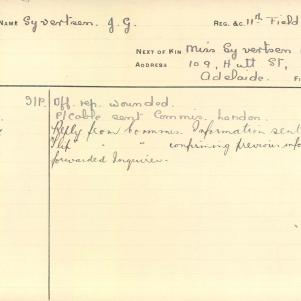 NAME Syvertsen. J. G. REG. &C. 11th Field
NEXT OF KIN Miss Syvertsen
ADDRESS 109, Hutt St,
Adelaide.
S1P. Off. rep. wounded.
P/Cable sent Commis. London.
Reply from Commis. Information sent
" let " " confirming previous info
forwarded Inquirer.